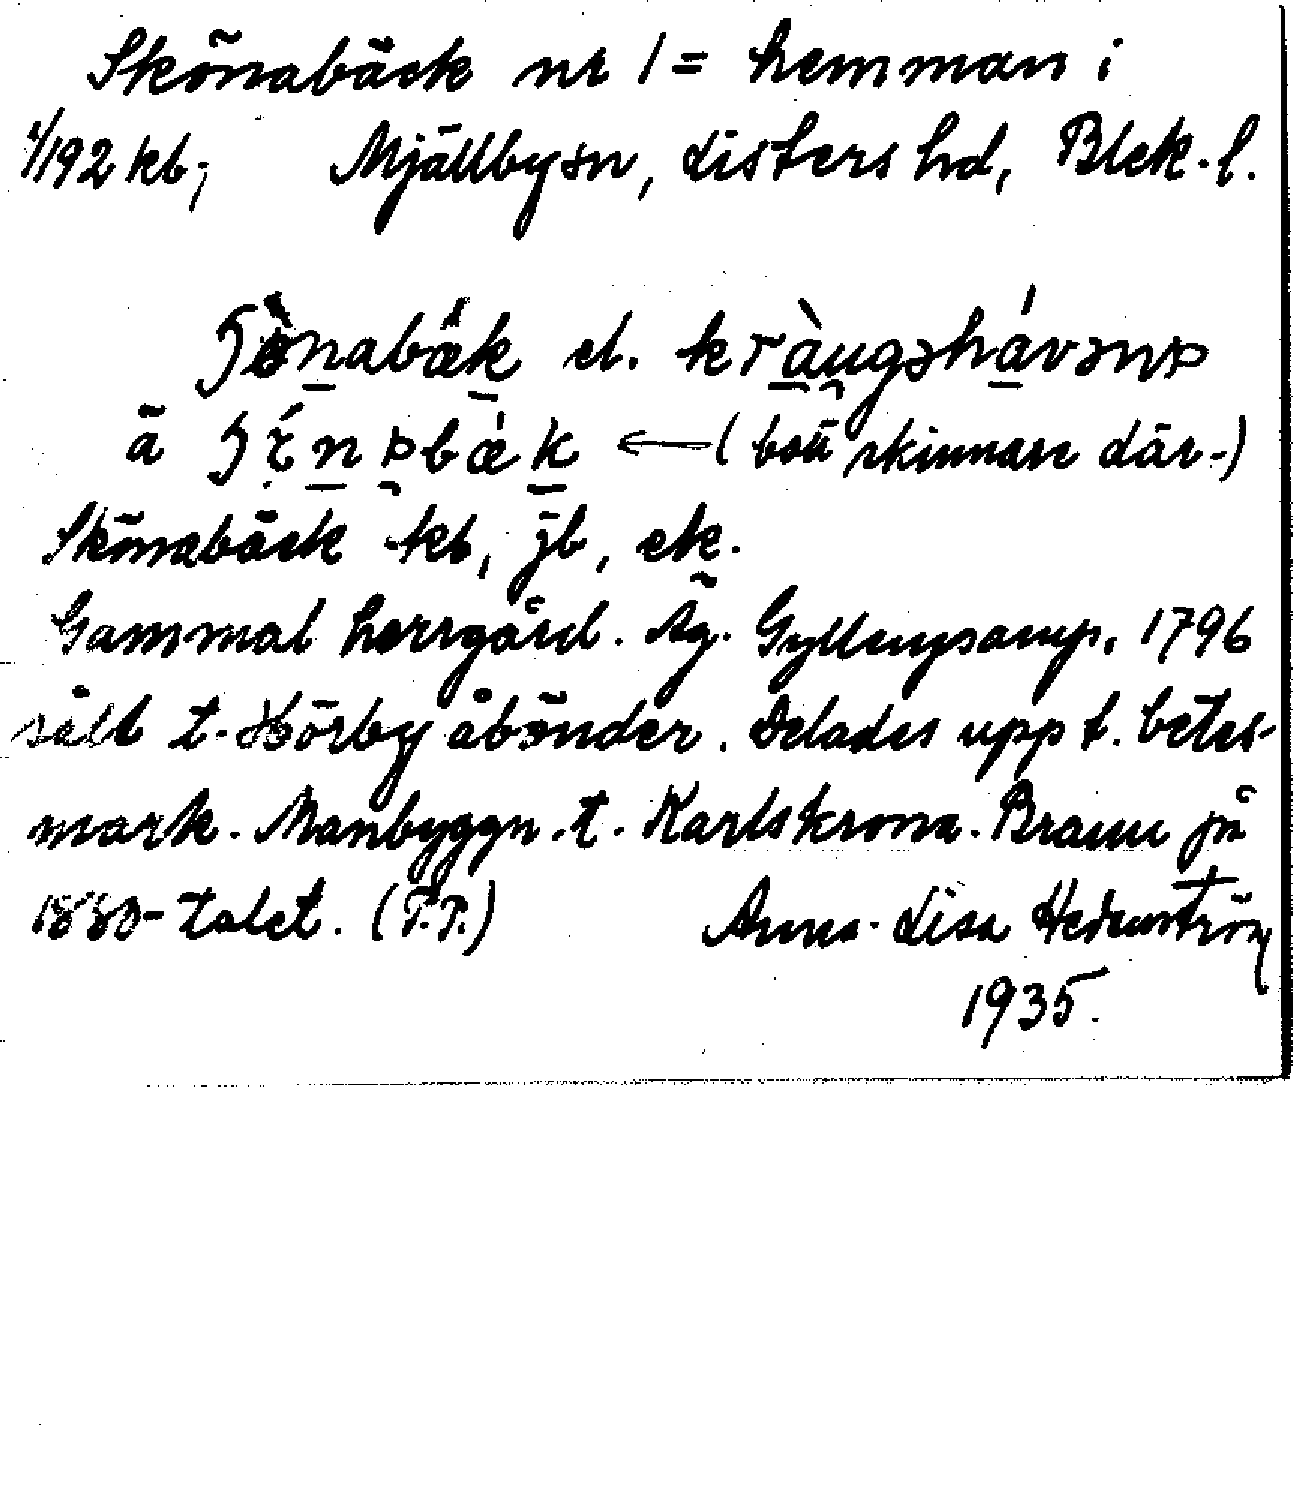 Skönabäck nr 1 = hemman i
1/192 kb; Mjällby sn, Listers hd, Blek. l.
el.
ä (bott skinnare där.)
Skönabäck kb, jb, ek.
Gammal herrgård. Äg. Gyllengranp. 1796
såld t. Hörby åbönder. Delades upp t. betes-
mark. Manbyggn. t. Karlskrona. Brann på
1880-talet. (T.P.) Anna-Lisa Hedenström
1935.